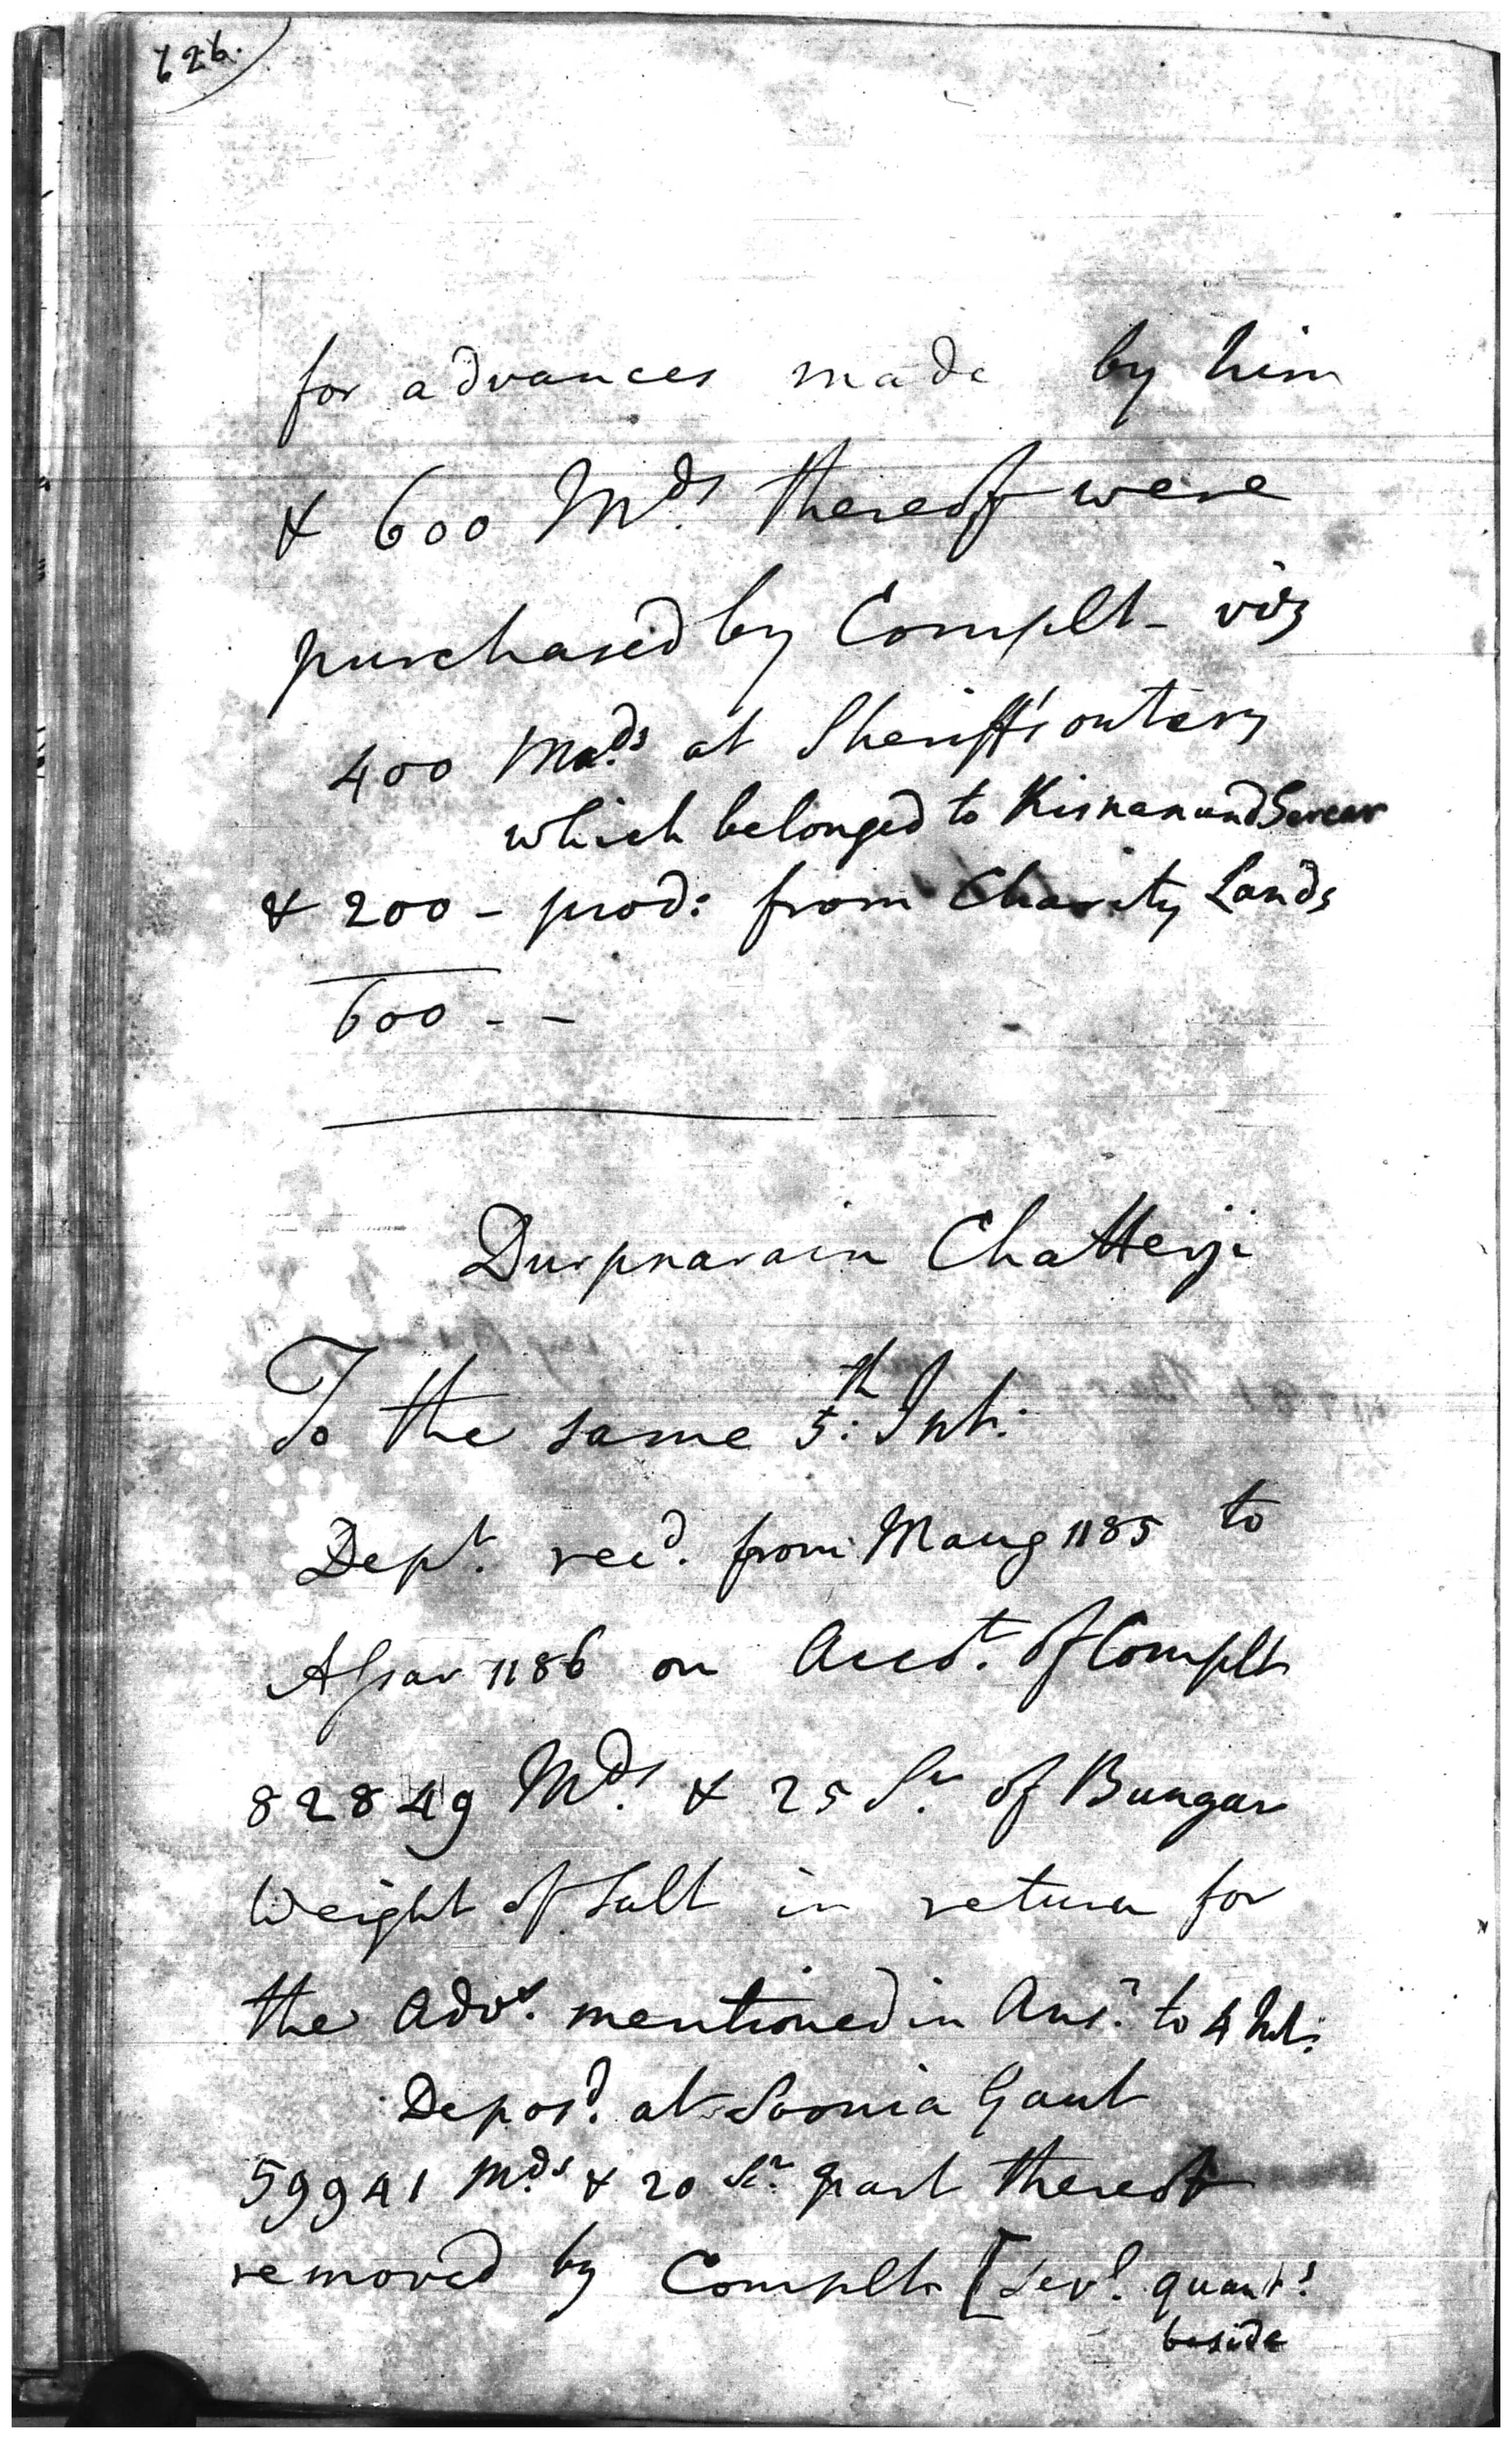 626.
for advances made by him
& 600 Mds. thereof were
purchased by Complt - viz
400 Mads. at Sheriff's outcry
which belonged to Kisnanund Sercar
& 200 - prod: from Charity Lands
600 - -
Durpnarain Chatterji
To the same 5th: Int:
Dept. recd. from Maug 1185 to
Assar 1186 on Acct. of Complt
82849 Mds. & 25 Sr. of Bungar
Weight of Salt in return for
the Advs. mentioned in Ansr. to 4 Int:
Deposd. at Soonia Gaut
59941 Mds. & 20 Sr. part thereof
removed by Complt [Sevl. quants.
beside